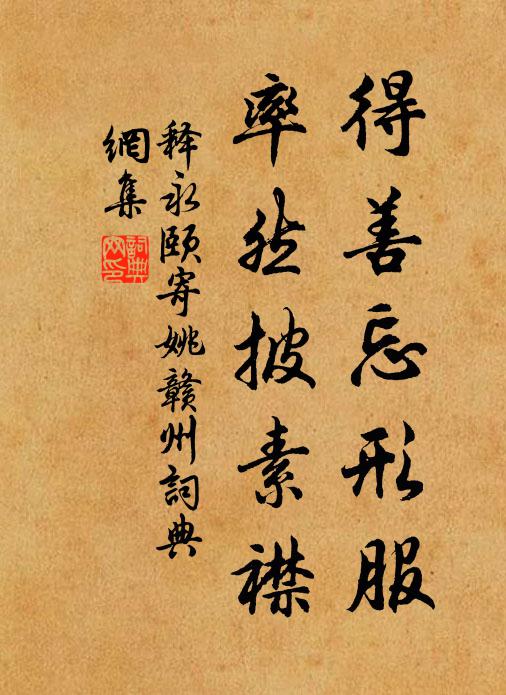 得善忘形服
率然披素襟
释永颐寄姚赣州詞典
網集
詞典
网印